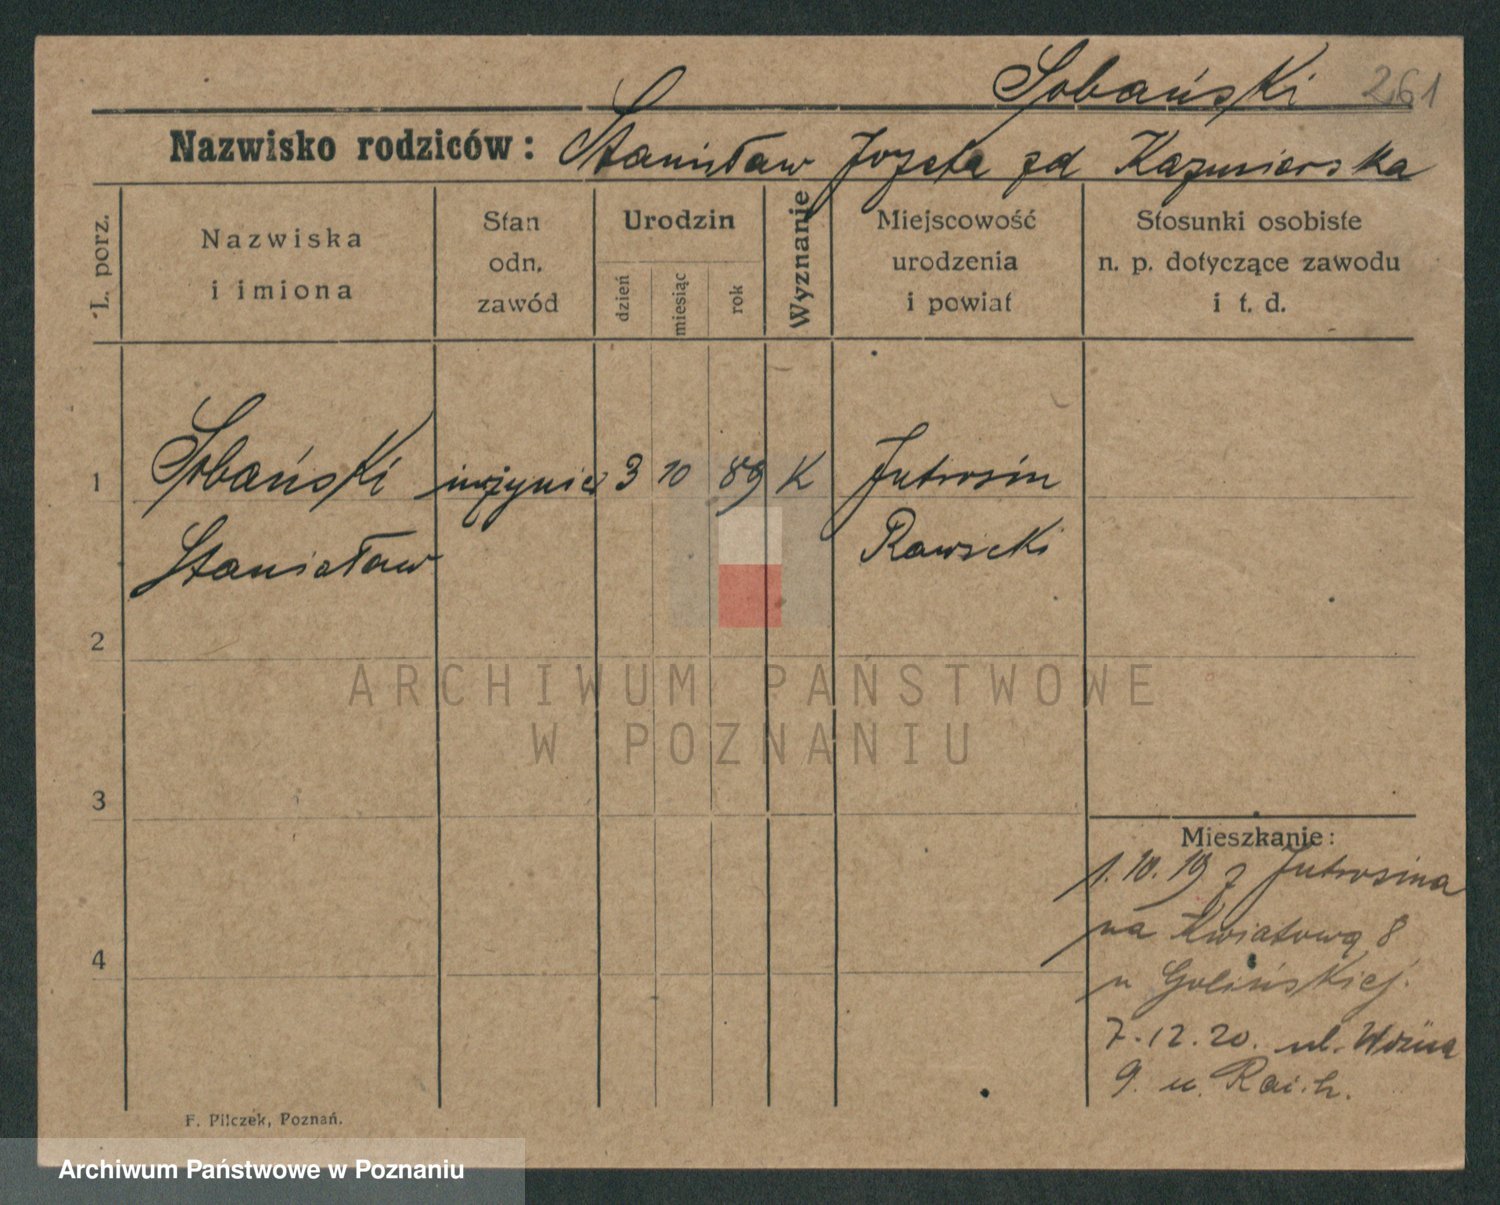 Sobański 261
Nazwisko rodziców: Stanisław Józefa zd Kaźmierska
L. porz.
Nazwiska
i imiona
Stan
odn.
zawód
Urodzin
dzień
miesiąc
rok
Wyznanie
Miejscowość
urodzenia
i powiat
Stosunki osobiste
n. p. dotyczące zawodu
i t. d.
1 Sobański inżynier 3 10 89 K Jutrosin
Stanisław Rawicki
2
ARCHIWUM PAŃSTWOWE
W POZNANIU
3
Mieszkanie:
1.10.19 z Jutrosina
na Kwiatową 8
4
u Golińskiej.
7.12.20. ul. Woźna
9. u. Raich.
F. Pilczek, Poznań.
Archiwum Państwowe w Poznaniu